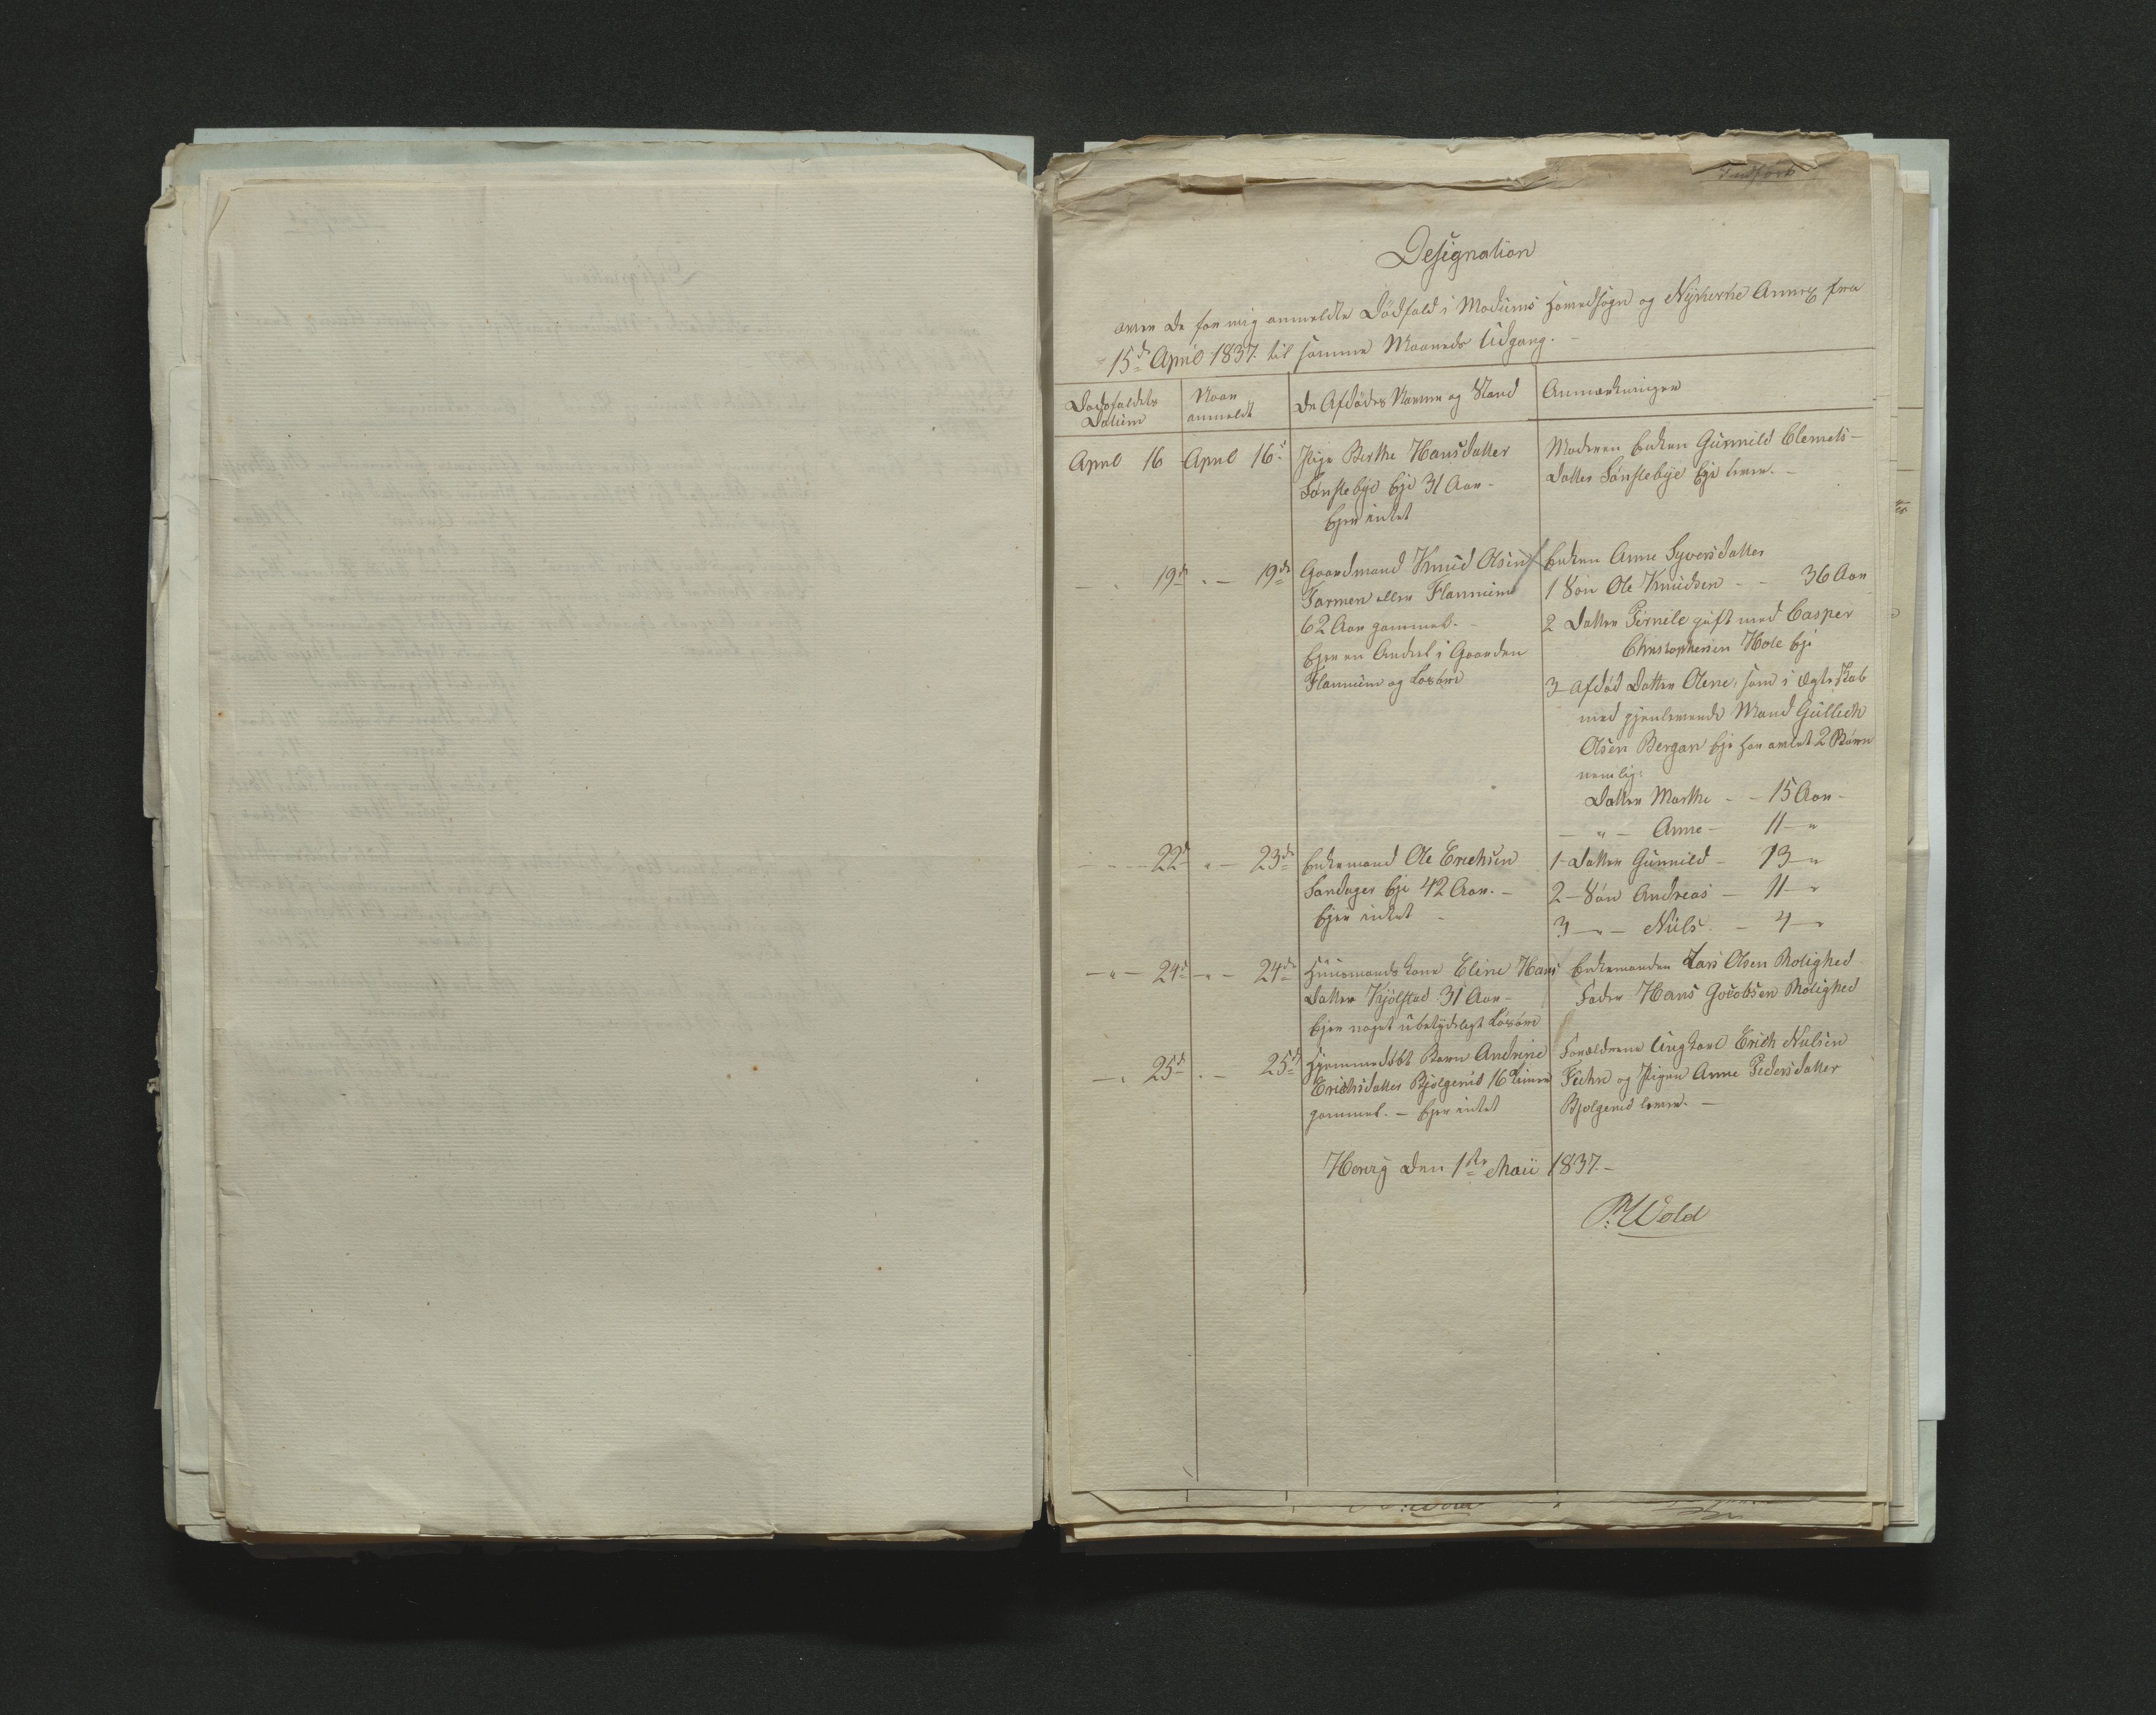 Indført
Designation
over de for mig anmeldte Dödsfald i Modums Hovedsogn og Nykirke Annex fra
15de April 1837 til samme Maaneds Udgang.
Dødsfaldets Datum
Naar anmeldt
De Afdødes Navne og Stand
Anmærkninger
April 16 April 16 Pige Berthe Hansdatter
Sønstebye Eje 31 Aar -
Ejer intet
Moderen Enken Gunnild Clemets-
datter Sønstebye Eje lever. -
19de 19de Gaardmand Knud Olsen
Farmen eller Flannum
62 Aar gammel. -
Ejer en Andeel i Gaarden
Flannum og Løsøre
Enken Anne Syversdatter
1 Søn Ole Knudsen - - 36 Aar
2 Datter Pernile gift med Casper
Christophersen Hole Eje
3 Afdød Datter Olene, som i Ægteskab
med gjenlevende Mand Gullich
Olsen Bergan Eje har avlet 2 Børn
nemlig:
Datter Marthe - - 15 Aar -
- " - Anne - 11 - "
22de " - 23de Enkemand Ole Erichsen
Sandager Eje 42 Aar. -
Ejer intet -
1 - Datter Gunnild - 13 - "
2 - Søn Andreas - 11 - "
3 - " - Niils. - 4 - "
- " - 24de - " - 24de Huusmands Kone Eline Hans
Datter Kjölstad 31 Aar -
Ejer noget ubetydeligt Løsøre
Enkemanden Lars Olsen Rolighed
Fader Hans Jacobsen Rolighed
25de 25de Hjemmedøbt Barn Andrine
Erichsdatter Bjølgerud 16 Timer
gammel. - Ejer intet
Forældrene Ungkarl Erich Nielsen
Feehn og Pigen Anne Pedersdatter
Bjølgerud lever. -
Hovrig den 1ste Maii 1837. -
P. Wold